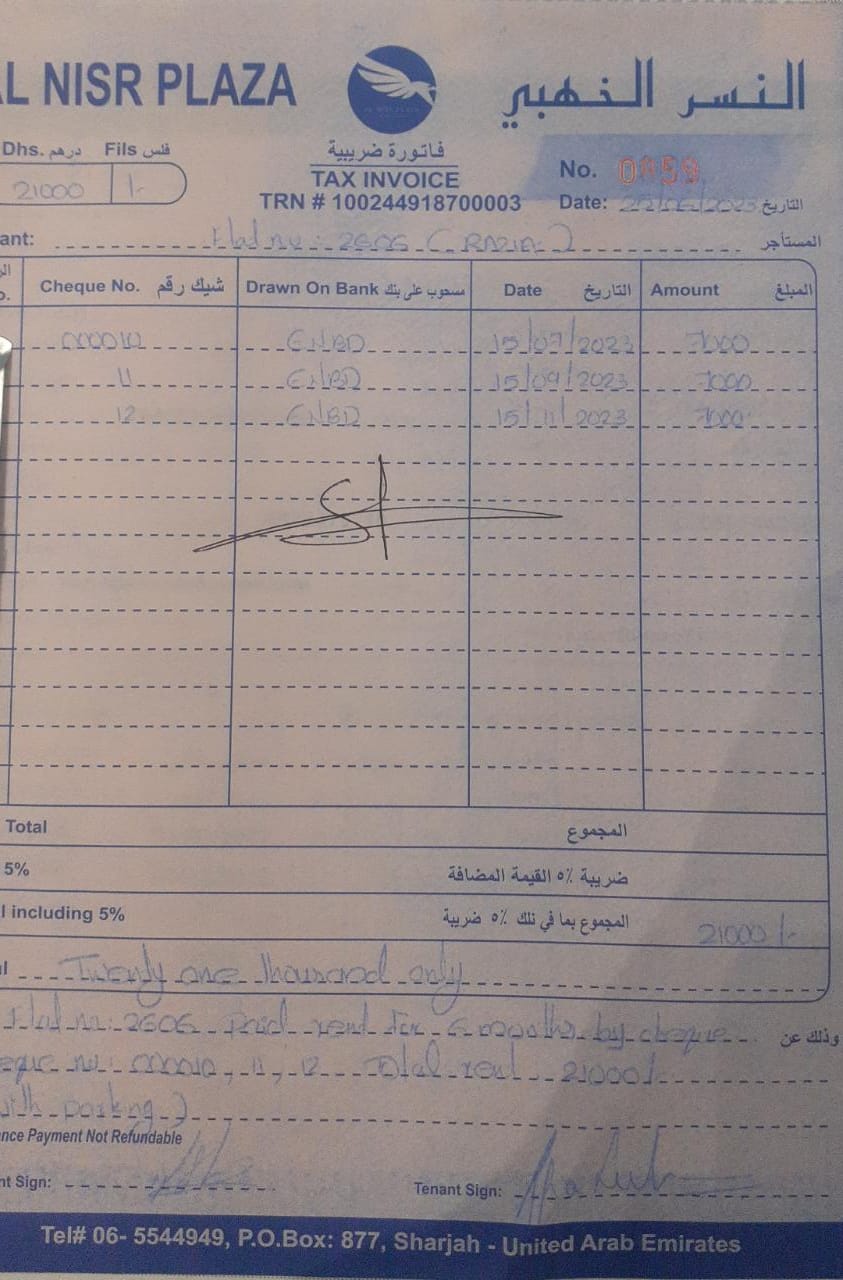 AL NISR PLAZA
النسر الذهبي
Dhs. درهم Fils فلس
21000 /-
فاتورة ضريبية
TAX INVOICE
TRN # 100244918700003
No. 0859
Date: 22/06/2023 التاريخ
ant: Flat no: 2606 (RAZIA) المستأجر
Cheque No. شيك رقم Drawn On Bank مسحوب على بنك Date التاريخ Amount المبلغ
000010 ENBD 15/07/2023 7000
11 ENBD 15/09/2023 7000
12 ENBD 15/11/2023 7000
Total المجموع
5% ضريبة ٥٪ القيمة المضافة
l including 5% المجموع بما في ذلك ٥٪ ضريبة 21000/-
Twenty one thousand only
Flat no: 2606 paid rent for 6 months by cheque وذلك عن
eque no: 000010, 11, 12 Total rent 21000/-
with parking)
nce Payment Not Refundable
nt Sign: Tenant Sign:
Tel# 06- 5544949, P.O.Box: 877, Sharjah - United Arab Emirates